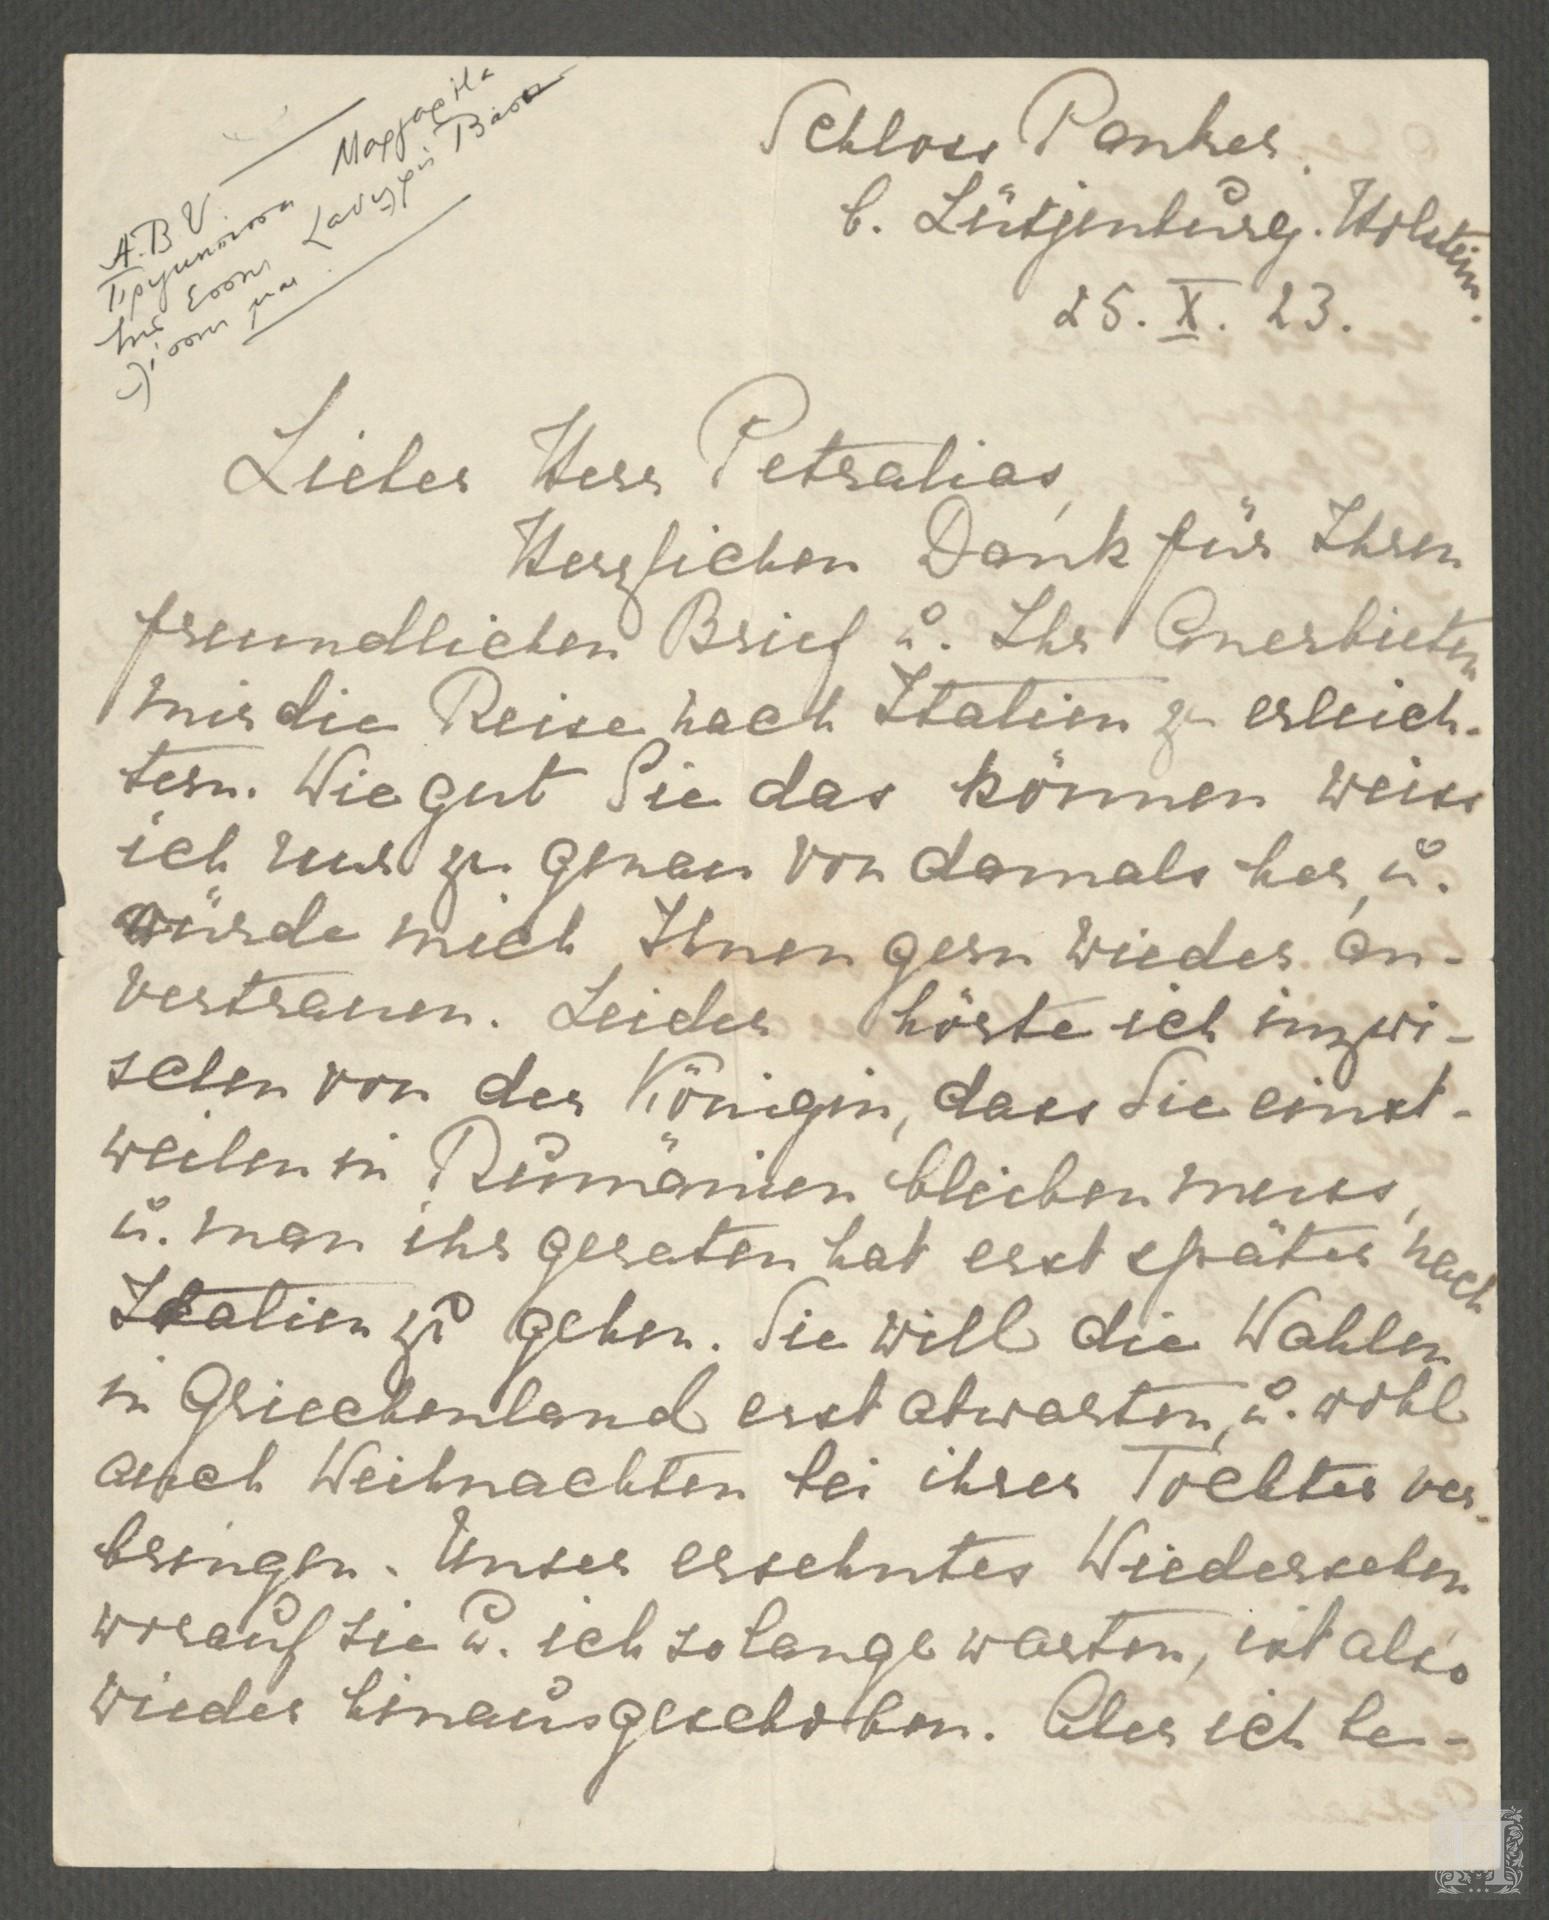 Α.Β.Υ.
Πριγκιπισσα Μαργαρίτα
της Εσσης Λανδγρ Βασι
Schloss Panker.
b. Lütjenburg. Holstein.
25. X. 23.
Lieber Herr Petralias,
Herzlichen Dank für Ihren
freundlichen Brief u. Ihr Anerbieten
mir die Reise nach Italien zu erleich-
tern. Wie gut Sie das können weiss
ich nur zu genau von damals her, u.
würde mich Ihnen gern wieder an-
vertrauen. Leider hörte ich inzwi-
schen von der Königin, dass Sie einst-
weilen in Rumänien bleiben muss,
u. man ihr geraten hat erst später nach
Italien zu gehen. Sie will die Wahlen
in Griechenland erst abwarten, u. wohl
auch Weihnachten bei ihrer Tochter ver-
bringen. Unser ersehntes Wiedersehen
worauf sie u. ich so lange warten, ist also
wieder hinausgeschoben. Aber ich be-